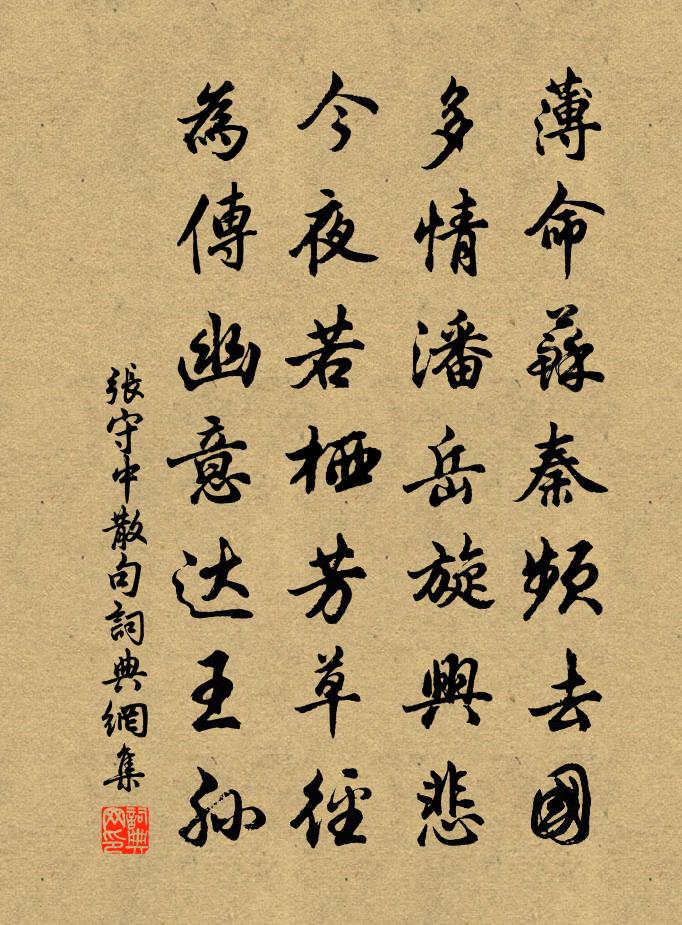 薄命蘇秦頻去國
多情潘岳旋興悲
今夜若栖芳草徑
為傳幽意达王孫
張守中散句詞典網集
詞典網印